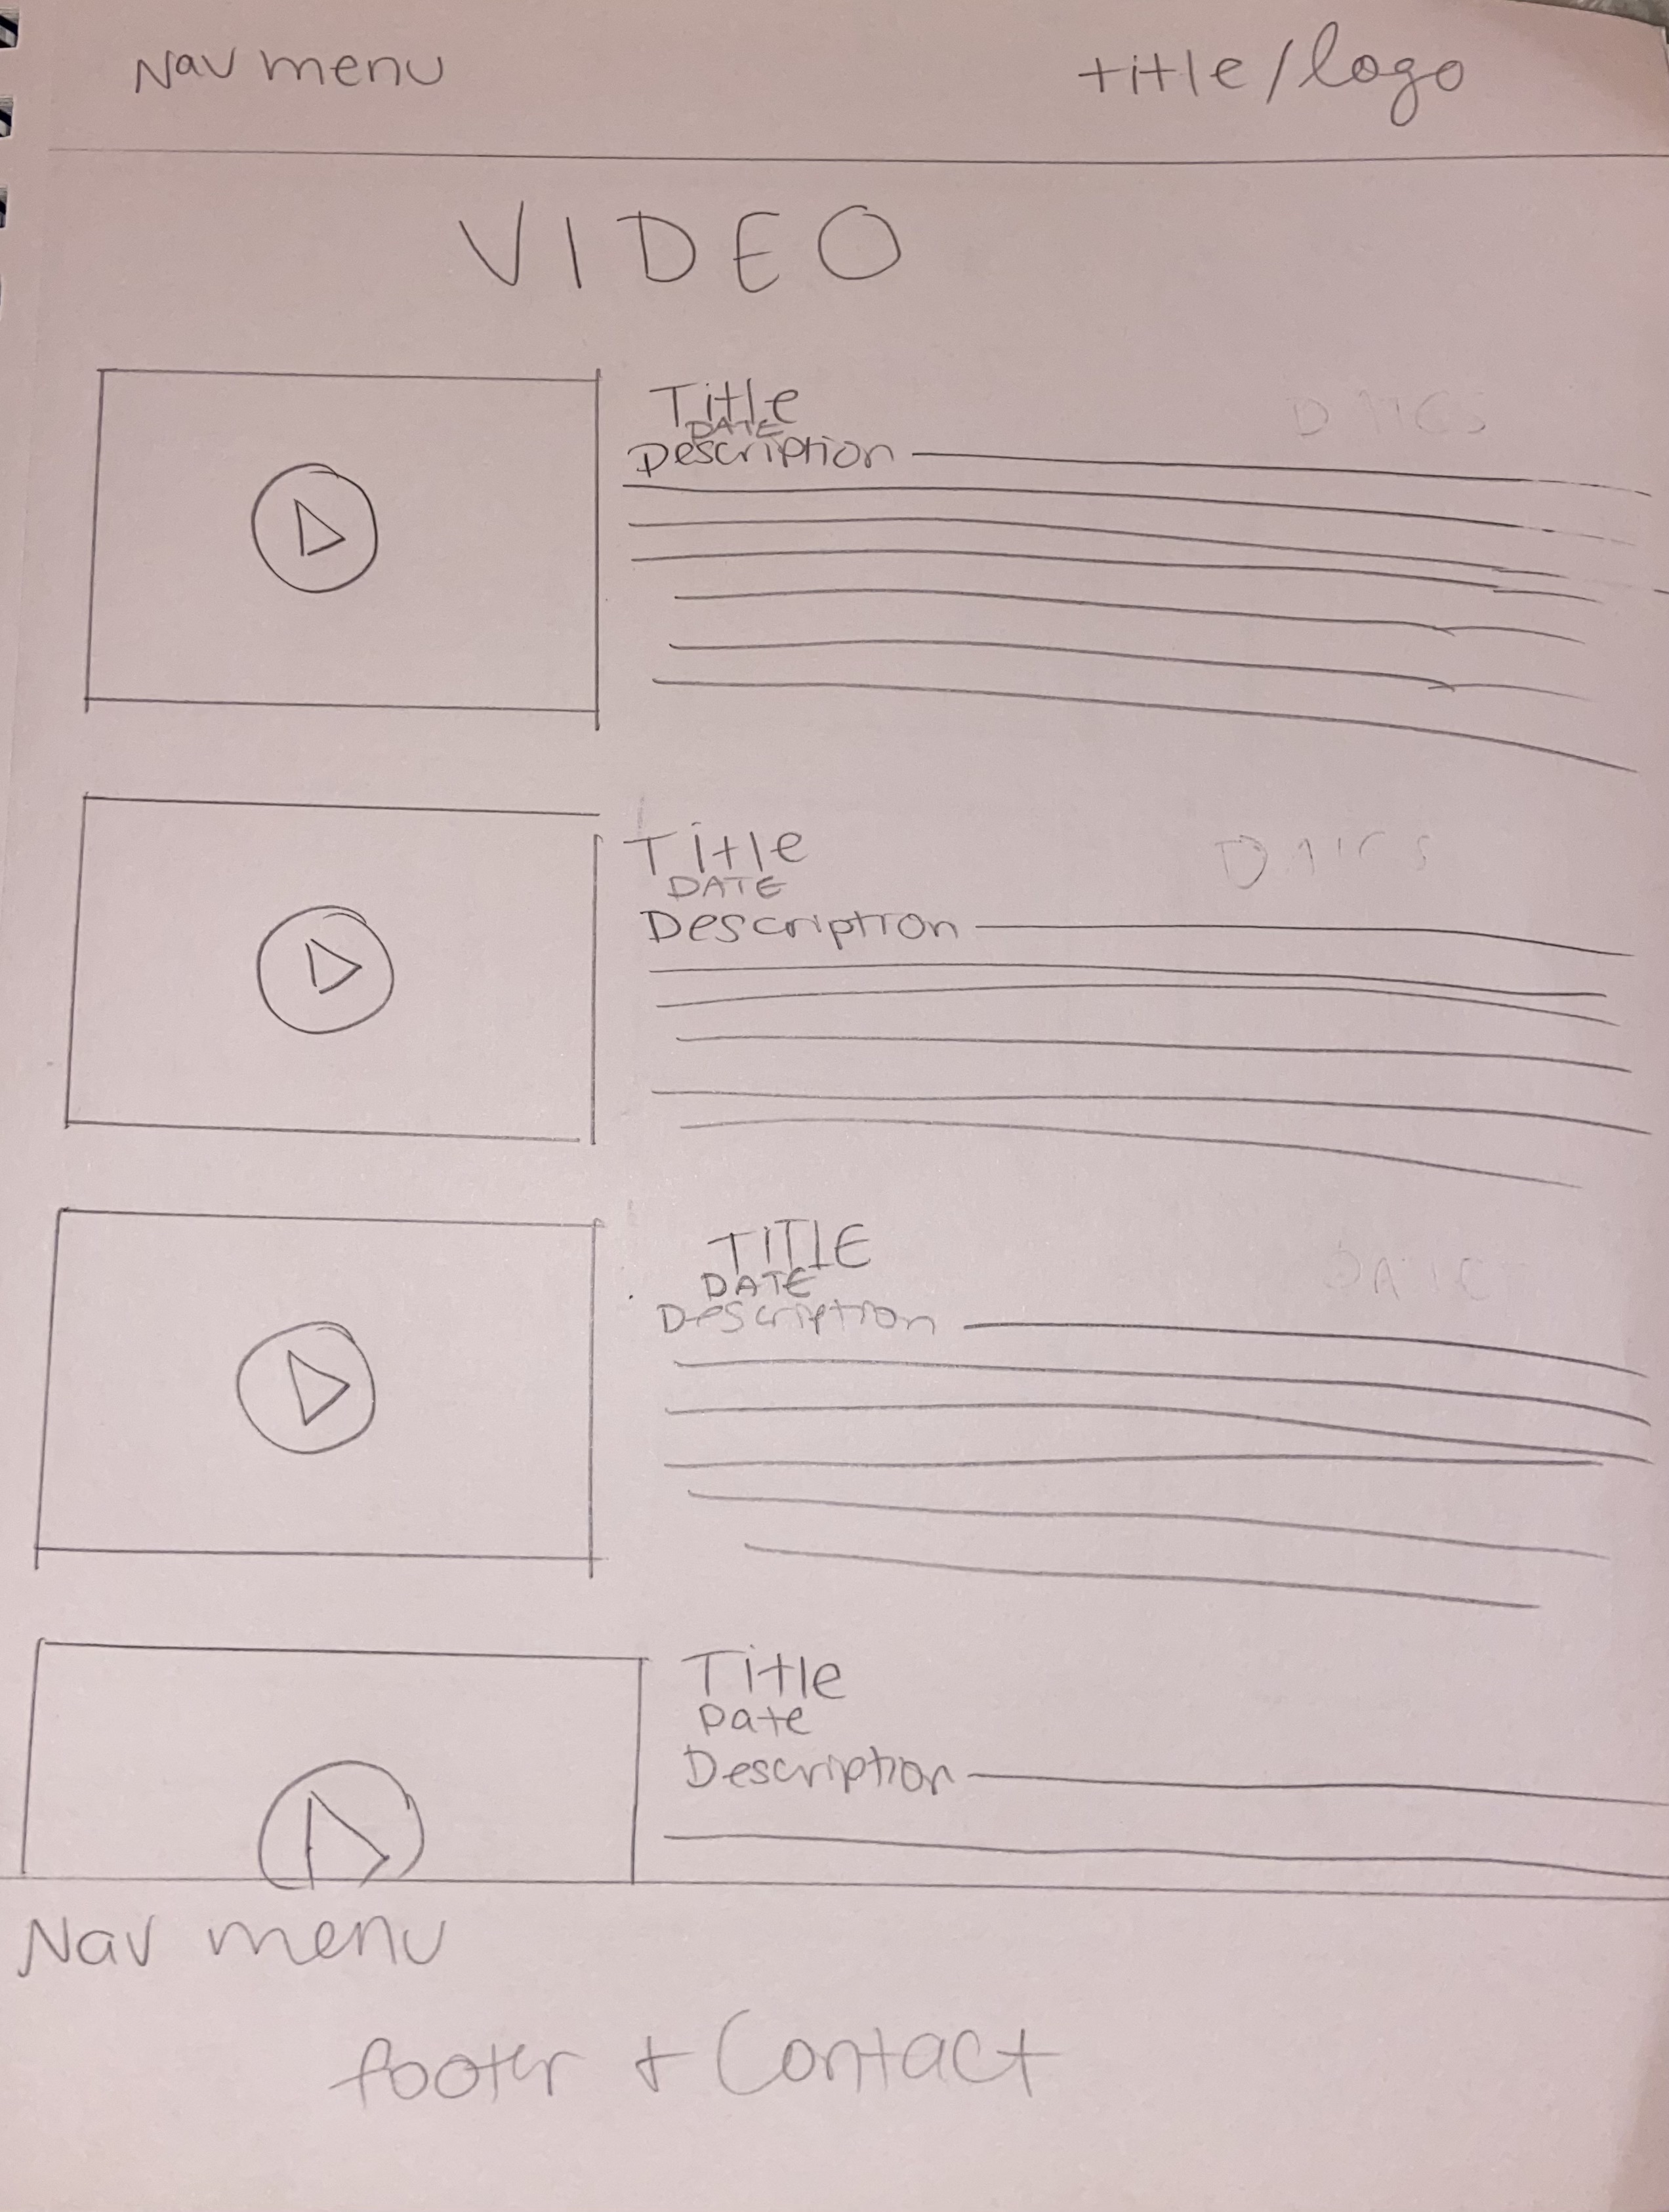 Nav menu title/logo
VIDEO
Title
DATE
Description
Title
DATE
Description
TITLE
DATE
Description
Title
Date
Description
Nav menu
footer + Contact